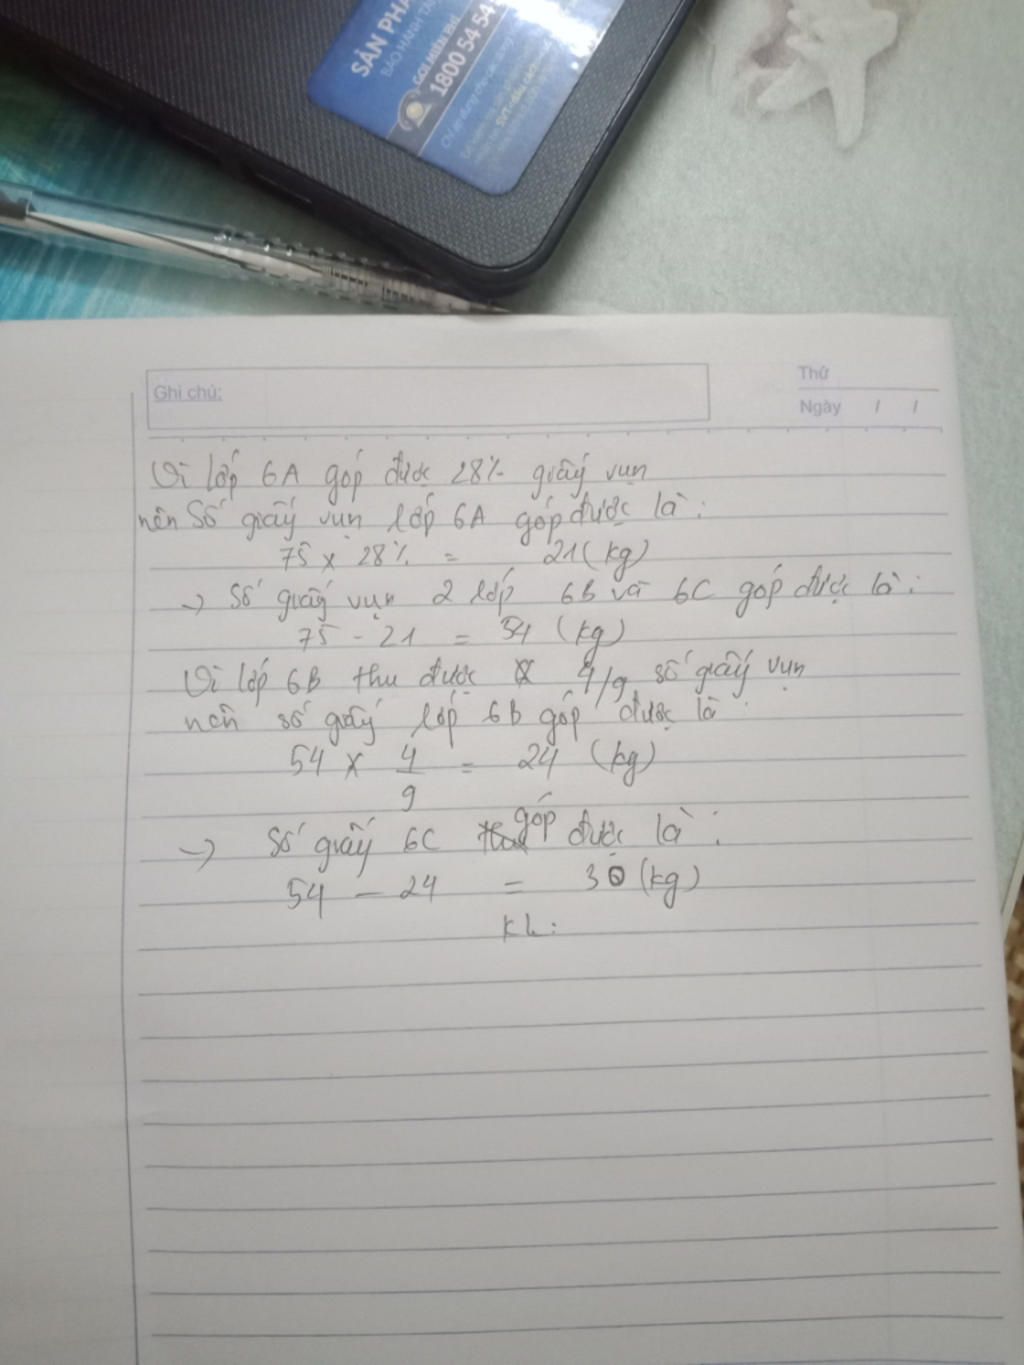 SẢN PHẨ
BẢO HÀNH TẠ
GỌI MIỄN PHÍ
1800 54 54
Chỉ áp dụng cho các
Ghi chú:
Thứ
Ngày / /
Vì lớp 6A góp được 28% giấy vụn
nên Số giấy vụn lớp 6A góp được là:
75 x 28% = 21 (kg)
-> Số giấy vụn 2 lớp 6B và 6C góp được là:
75 - 21 = 54 (kg)
Vì lớp 6B thu được 4/9 số giấy vụn
nên số giấy lớp 6B góp được là
54 x 4/9 = 24 (kg)
-> Số giấy 6C góp được là:
54 - 24 = 30 (kg)
KL: